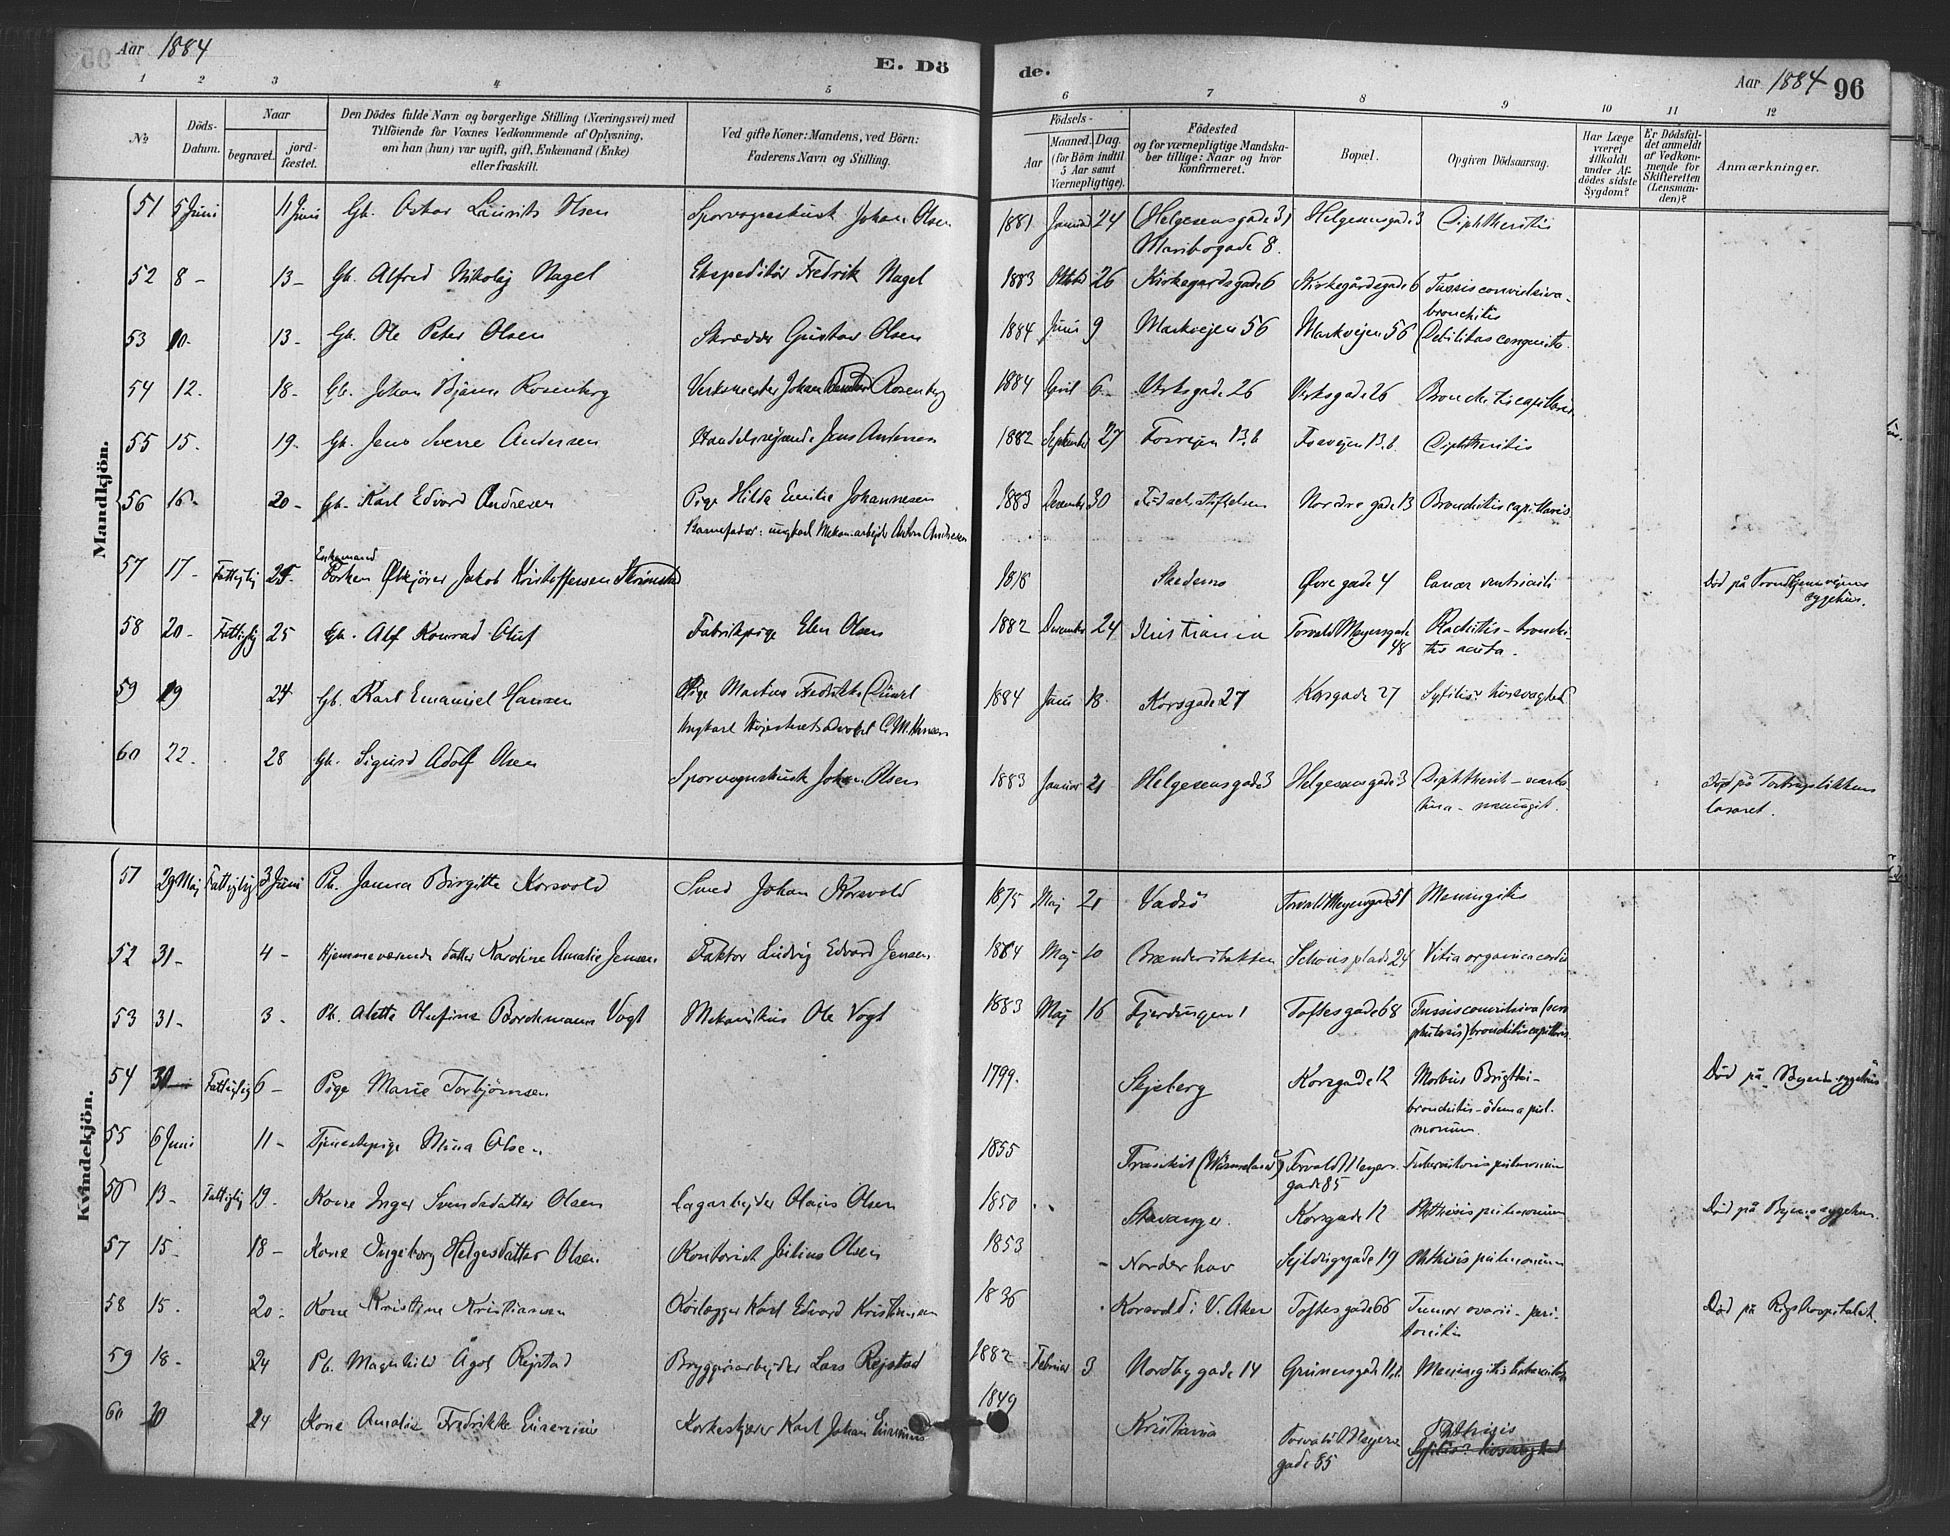 Aar 1884
E. Dö
de.
Aar 1884 96
1 2 3 4 5 6 7 8 9 10 11 12
No
Döds-Datum.
Naar
begravet.
jordfæstet.
Den Dödes fulde Navn og borgerlige Stilling (Næringsvei) med
Tilföiende for Voxnes Vedkommende af Oplysning,
om han (hun) var ugift, gift, Enkemand (Enke)
eller fraskilt.
Ved gifte Koner: Mandens, ved Börn:
Faderens Navn og Stilling.
Födsels-
Aar
Maaned. Dag.
(for Börn indtil
5 Aar samt
Værnepligtige).
Födested
og for værnepligtige Mandska-
ber tillige: Naar og hvor
konfirmeret.
Bopæl.
Opgiven Dödsaarsag.
Har Læge
været
tilkaldt
under Af-
dödes sidste
Sygdom?
Er Dödsfal-
det anmeldt
af Vedkom-
mende for
Skifteretten
(Lensman-
den)?
Anmærkninger.
Mandkjön.
51 5 Juni 11 Juni Gb. Oskar Laurits Olsen Sporvognskusk Johan Olsen 1881 Januar 24 (Helgesensgade 3) Helgesensgade 3 Diphtheritis
Maribogade 8.
52 8 - 13 - Gb. Alfred Nikolaj Nagel Ekspeditør Fredrik Nagel 1883 Oktober 26 Kirkegårdsgade 6 Kirkegårdsgade 6 Tussis convulsiva -
bronchitis
53 10 - 13 - Gb. Ole Peter Olsen Skrædder Gustav Olsen 1884 Juni 9 Markvejen 56 Markvejen 56 Debilitas congenita
54 12. 18 - Gb. Johan Bjarne Rosenberg Verksmester Johan Rosenberg 1884 April 6 Verksgade 26 Verksgade 26 Bronchitis capillaris
55 15. 19. Gb. Jens Sverre Andersen Handelsrejsende Jens Andersen 1882 September 27 Fossvejen 13 b Fossvejen 13 b. Diphtheritis
56 16 - 20 - Gb. Karl Edvard Andresen Pige Hilda Emilie Johannesen 1883 December 30 Fødselsstiftelsen Nordre gade 13 Bronchitis capillaris
Barnefader: ungkarl Mekan. arbejder Anton Andresen
Enkemand
57 17 - Fattiglig 25 - Jakob Kristoffersen 1818 Skedsmo Øvre gade 4 Cancer ventriculi Død på Trondhjemsvejens
sygehus.
58 20 - Fattiglig 25 Gb. Alf Konrad Oluf Fabrikpige Elen Olsen 1882 December 24 Kristiania Torvald Meyersgade Rachitis - bronchi-
48 tis acuta.
59 19 24 Gb. Karl Emanuel Hansen Pige 1884 Juni 18 Korsgade 27 Korsgade 27 Syfilis? livssvaghed?
Ungkarl Højesteretsadvokat C. M. Hansen
60 22. 28 Gb. Sigurd Adolf Olsen Sporvognskusk Johan Olsen 1883 Januar 21 Helgesensgade 3 Helgesensgade 3 Diphtherit - scarla-
tina - meningit. Død på
lasaret.
Kvindekjön.
51 29 Maj Fattiglig 3 Juni Pb. Janna Birgitte Korsvold Smed Johan Korsvold 1875 Maj 21 Vadsø Torvald Meyersgade 51 Meningitis
52 31 - 4 - Hjemmeværende datter Karoline Amalie Jensen Faktor Ludvig Edvard Jensen 1864 Maj 10 Brænderibakken Schous plads 24 Vitia organica cordis
53 31 - 3 - Pb. Alette Olufine Borchmann Vogt Mekanikus Ole Vogt 1883 Maj 16 Fjerdingen 1 Toftesgade 68 Tussis convulsiva
bronchitis capillaris
54 30 Fattiglig 6 - Pige Marie Torbjørnsen 1799. Skjeberg Korsgade 12 Morbus Brigthii - Død på Byens sygehus
bronchitis - ödema pul-
monum.
55 6 Juni 11 - Tjenestepige Mina Olsen 1855 (Wärmeland) Torvald Meyers- Tuberculosis pulmonum
gade 85
56 13 - Fattiglig 19. Kone Inger Svendsdatter Olsen Olaus Olsen 1850 Stavanger. Korsgade 12 Phthisis pulmonum Død på Byens sygehus.
57 15 - 18 - Kone Ingeborg Helgesdatter Olsen Kontorist Julius Olsen 1853 Norderhov Sejldugsgade 19 Phthisis pulmonum
58 15. 20 - Kone Kristine Kristiansen Rørlægger Karl Edvard Kristiansen 1836 Korsvold i V. Aker Toftesgade 66 Tumor ovarii - peri- Død på Rigshospitalet.
tonitis
59 18 - 24 Pb. Magnhild Ågot Rejstad Bryggeriarbejder Lars Rejstad 1882 Februar 3 Nordbygade 14 Grünersgade 11 Meningitis tuberculosa
60 20 24 Kone Amalie Fredrikke Korkeskjærer Karl Johan 1849 Kristiania Torvald Meyers- Phthisis
gade 85 Syfilis? livssvaghed